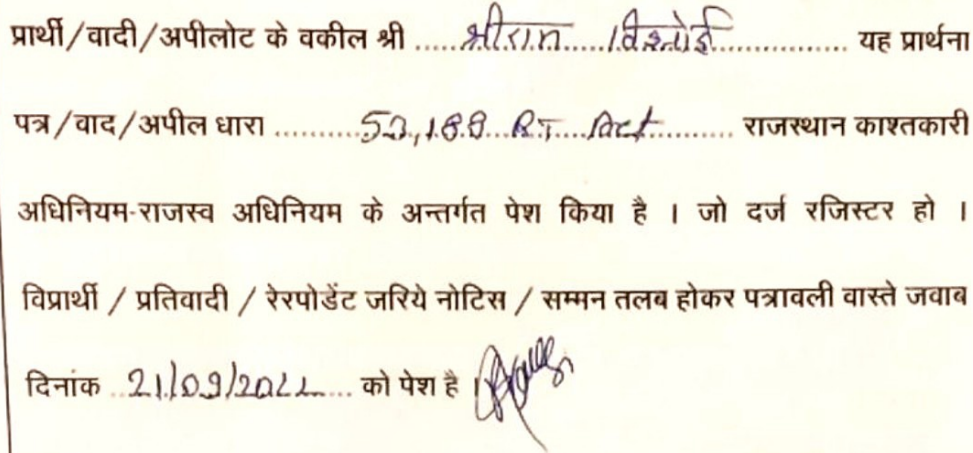 प्रार्थी/वादी/अपीलोट के वकील श्री ..... श्रीराम ..... विश्नोई ............... यह प्रार्थना
पत्र/वाद/अपील धारा .......... 53,188 R.T. Act .......... राजस्थान काश्तकारी
अधिनियम-राजस्व अधिनियम के अन्तर्गत पेश किया है । जो दर्ज रजिस्टर हो ।
विप्रार्थी / प्रतिवादी / रेरपोडेंट जरिये नोटिस / सम्मन तलब होकर पत्रावली वास्ते जवाब
दिनांक ..21/09/2022.... को पेश है ।